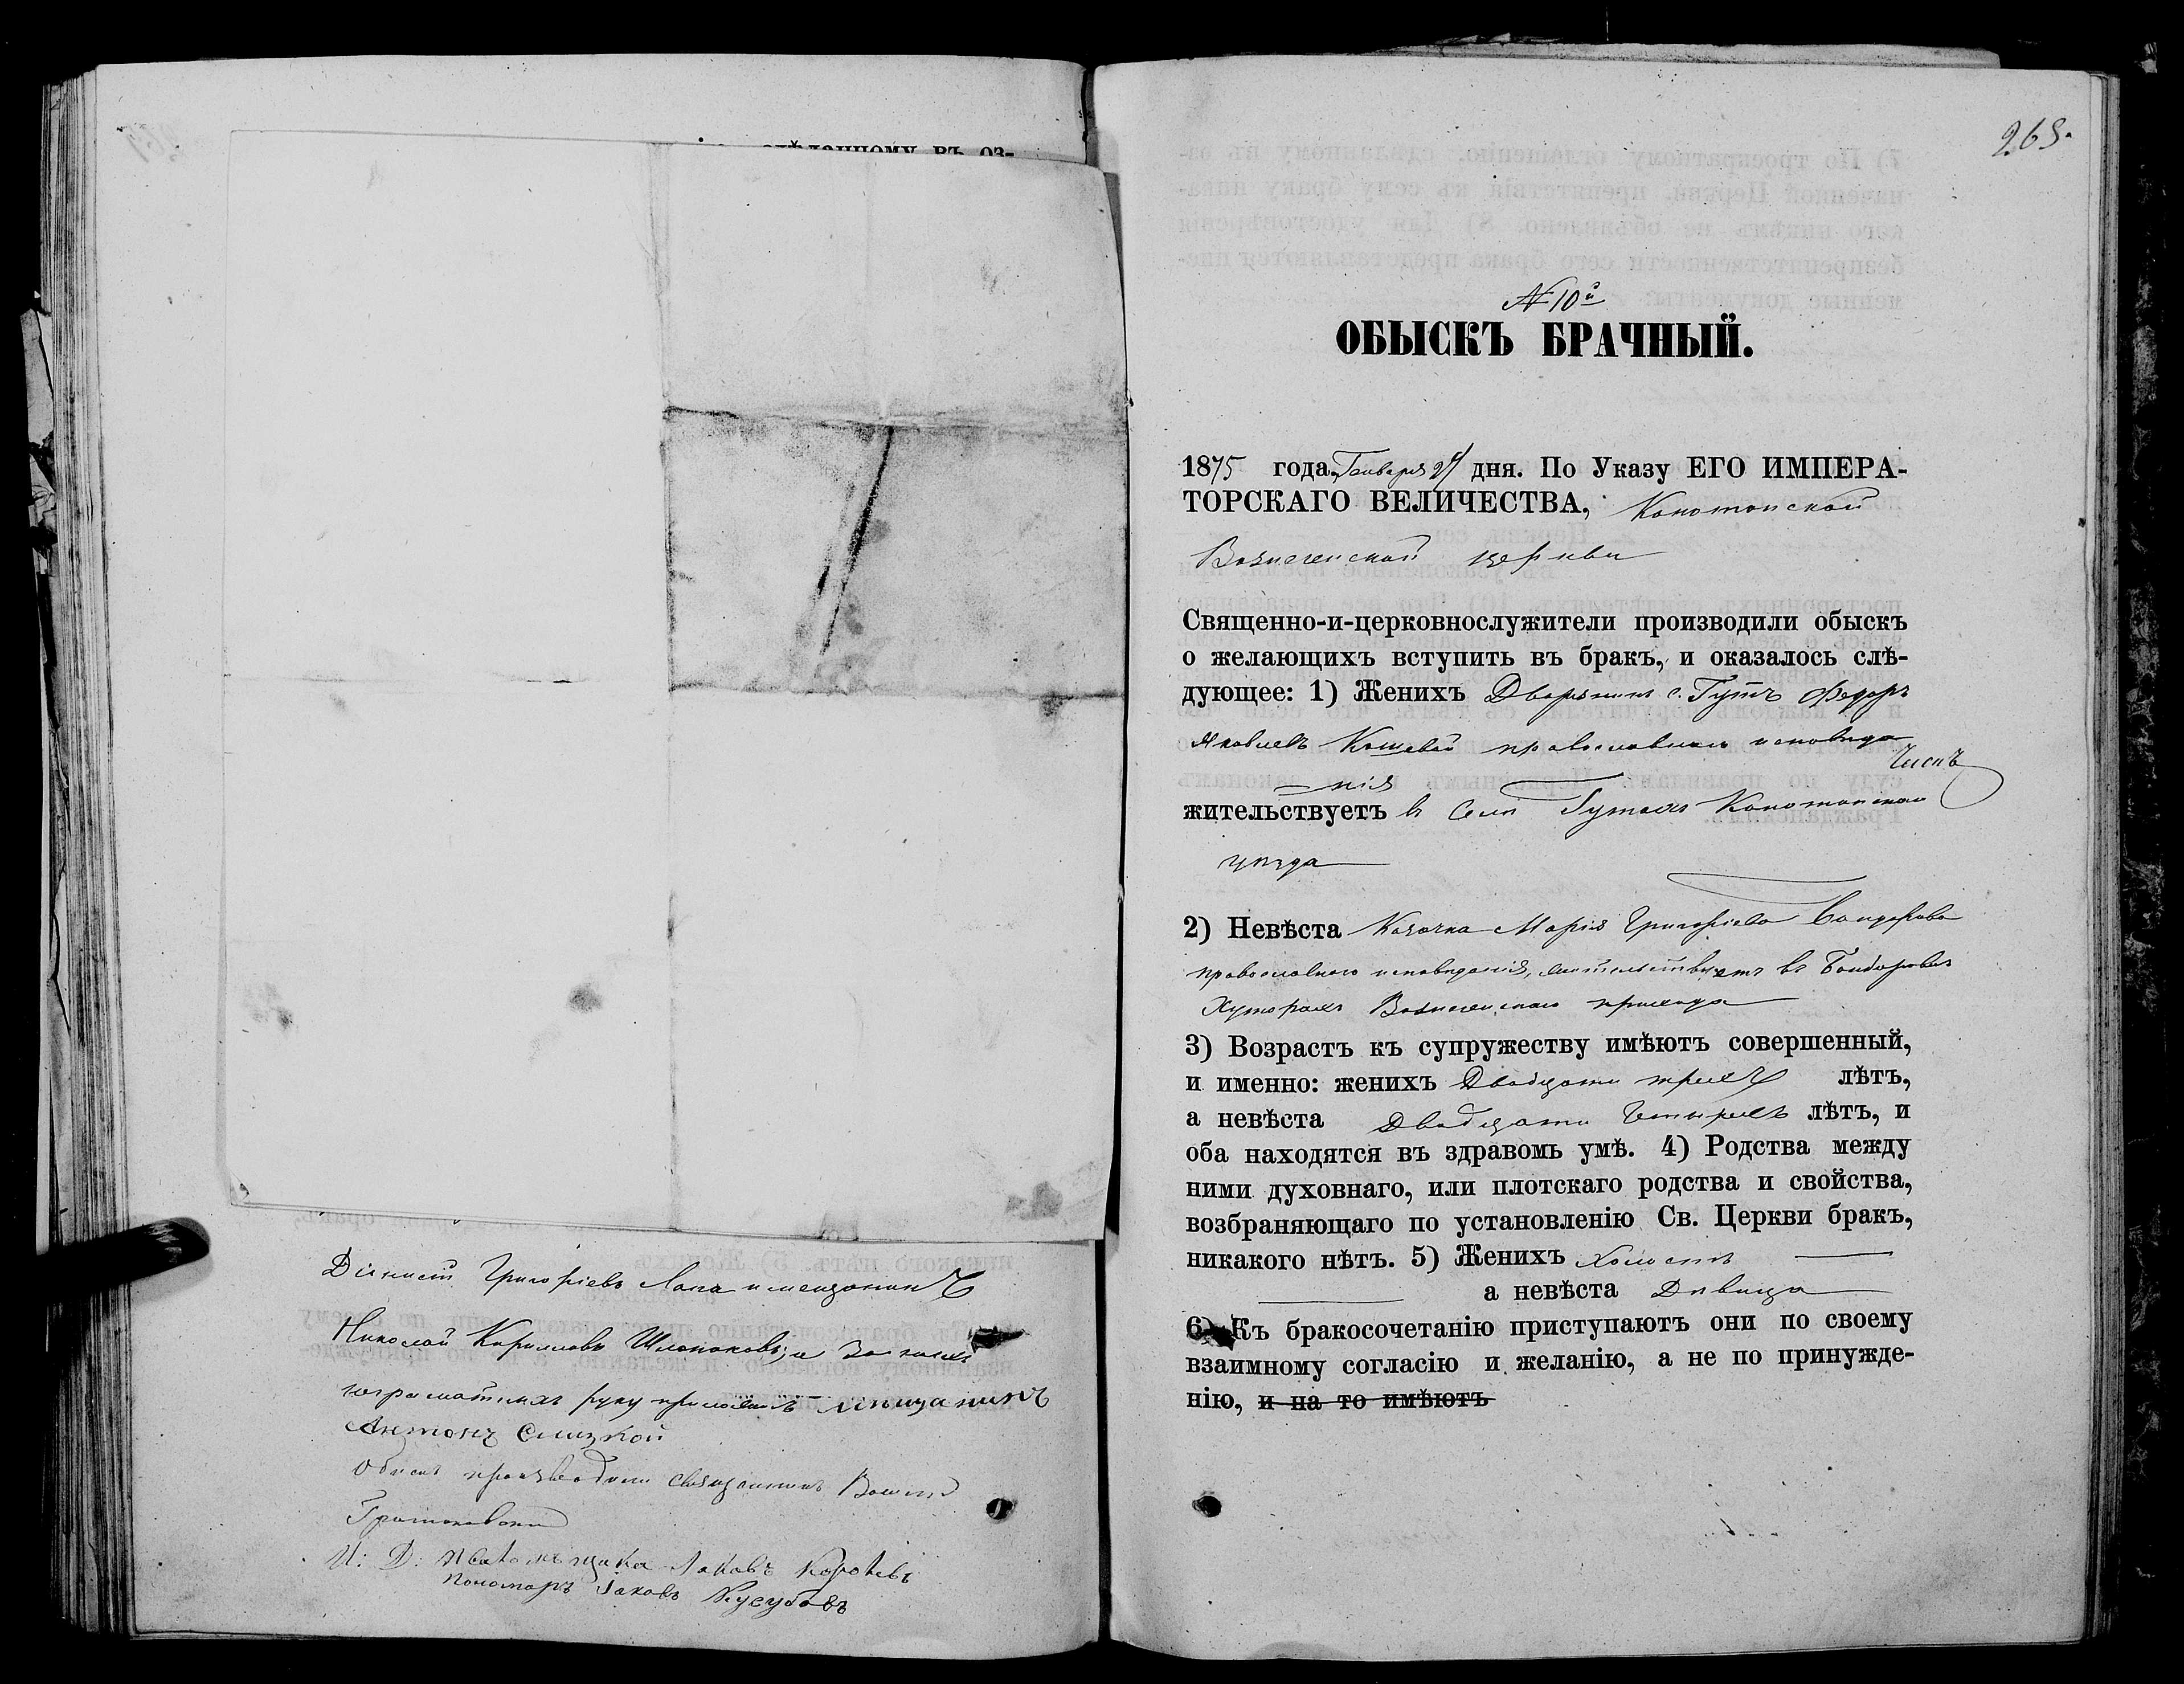 сдѣланному въ оз-
Григоріевъ Лапа и мещанинъ
Николай Кириловъ а за нихъ
неграмотныхъ руку приложилъ мещанинъ
Антонъ Слизкой
Обыскъ производили священникъ
И: Д: Псаломщика Іаковъ
Пономарь Іаковъ
265.
№ 10й
ОБЫСКЪ БРАЧНЫЙ.
1875 года Генваря дня. По Указу ЕГО ИМПЕРА-
ТОРСКАГО ВЕЛИЧЕСТВА, Конотопской
Вознесенской церкви
Священно-и-церковнослужители производили обыскъ
о желающихъ вступить въ бракъ, и оказалось слѣ-
дующее: 1) Женихъ Дворянинъ с. Гутъ Федоръ
Яковлевъ Кошевой православнаго исповѣда
нія
жительствуетъ в селѣ Гутахъ Конотопскаго
уѣзда
2) Невѣста Козачка Марія Григоріева Бондарева
православнаго исповѣданія, жительствуетъ въ Бондаревыхъ
Хуторахъ Вознесенскаго прихода
3) Возрастъ къ супружеству имѣютъ совершенный,
и именно: женихъ Двадцати трехъ лѣтъ,
а невѣста Двадцати Четырехъ лѣтъ, и
оба находятся въ здравомъ умѣ. 4) Родства между
ними духовнаго, или плотскаго родства и свойства,
возбраняющаго по установленію Св. Церкви бракъ,
никакого нѣтъ. 5) Женихъ холостъ
а невѣста Дѣвица
6) Къ бракосочетанію приступаютъ они по своему
взаимному согласію и желанію, а не по принужде-
нію, и на то имѣютъ